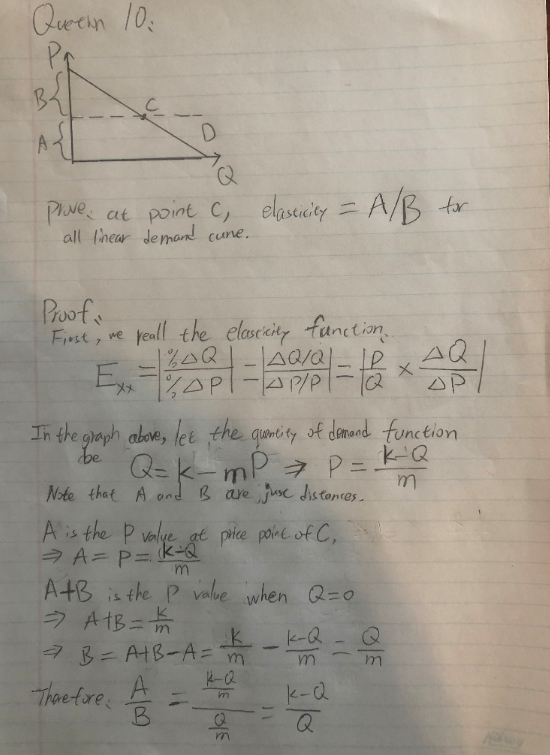 Question 10:
P
B {
C
A {
D
Q
Prove: at point C, elasticity = A/B for
all linear demand curve.
Proof:
First, we reall the elasticity function:
Exx = |%ΔQ / %ΔP| = |(ΔQ/Q) / (ΔP/P)| = |P/Q × ΔQ/ΔP|
In the graph above, let the quantity of demand function
be Q = k - mP ⇒ P = (k-Q)/m
Note that A and B are just distances.
A is the P value at price point of C,
⇒ A = P = (k-Q)/m
A+B is the P value when Q=0
⇒ A+B = k/m
⇒ B = A+B-A = k/m - (k-Q)/m = Q/m
Therefore: A/B = ((k-Q)/m) / (Q/m) = (k-Q)/Q